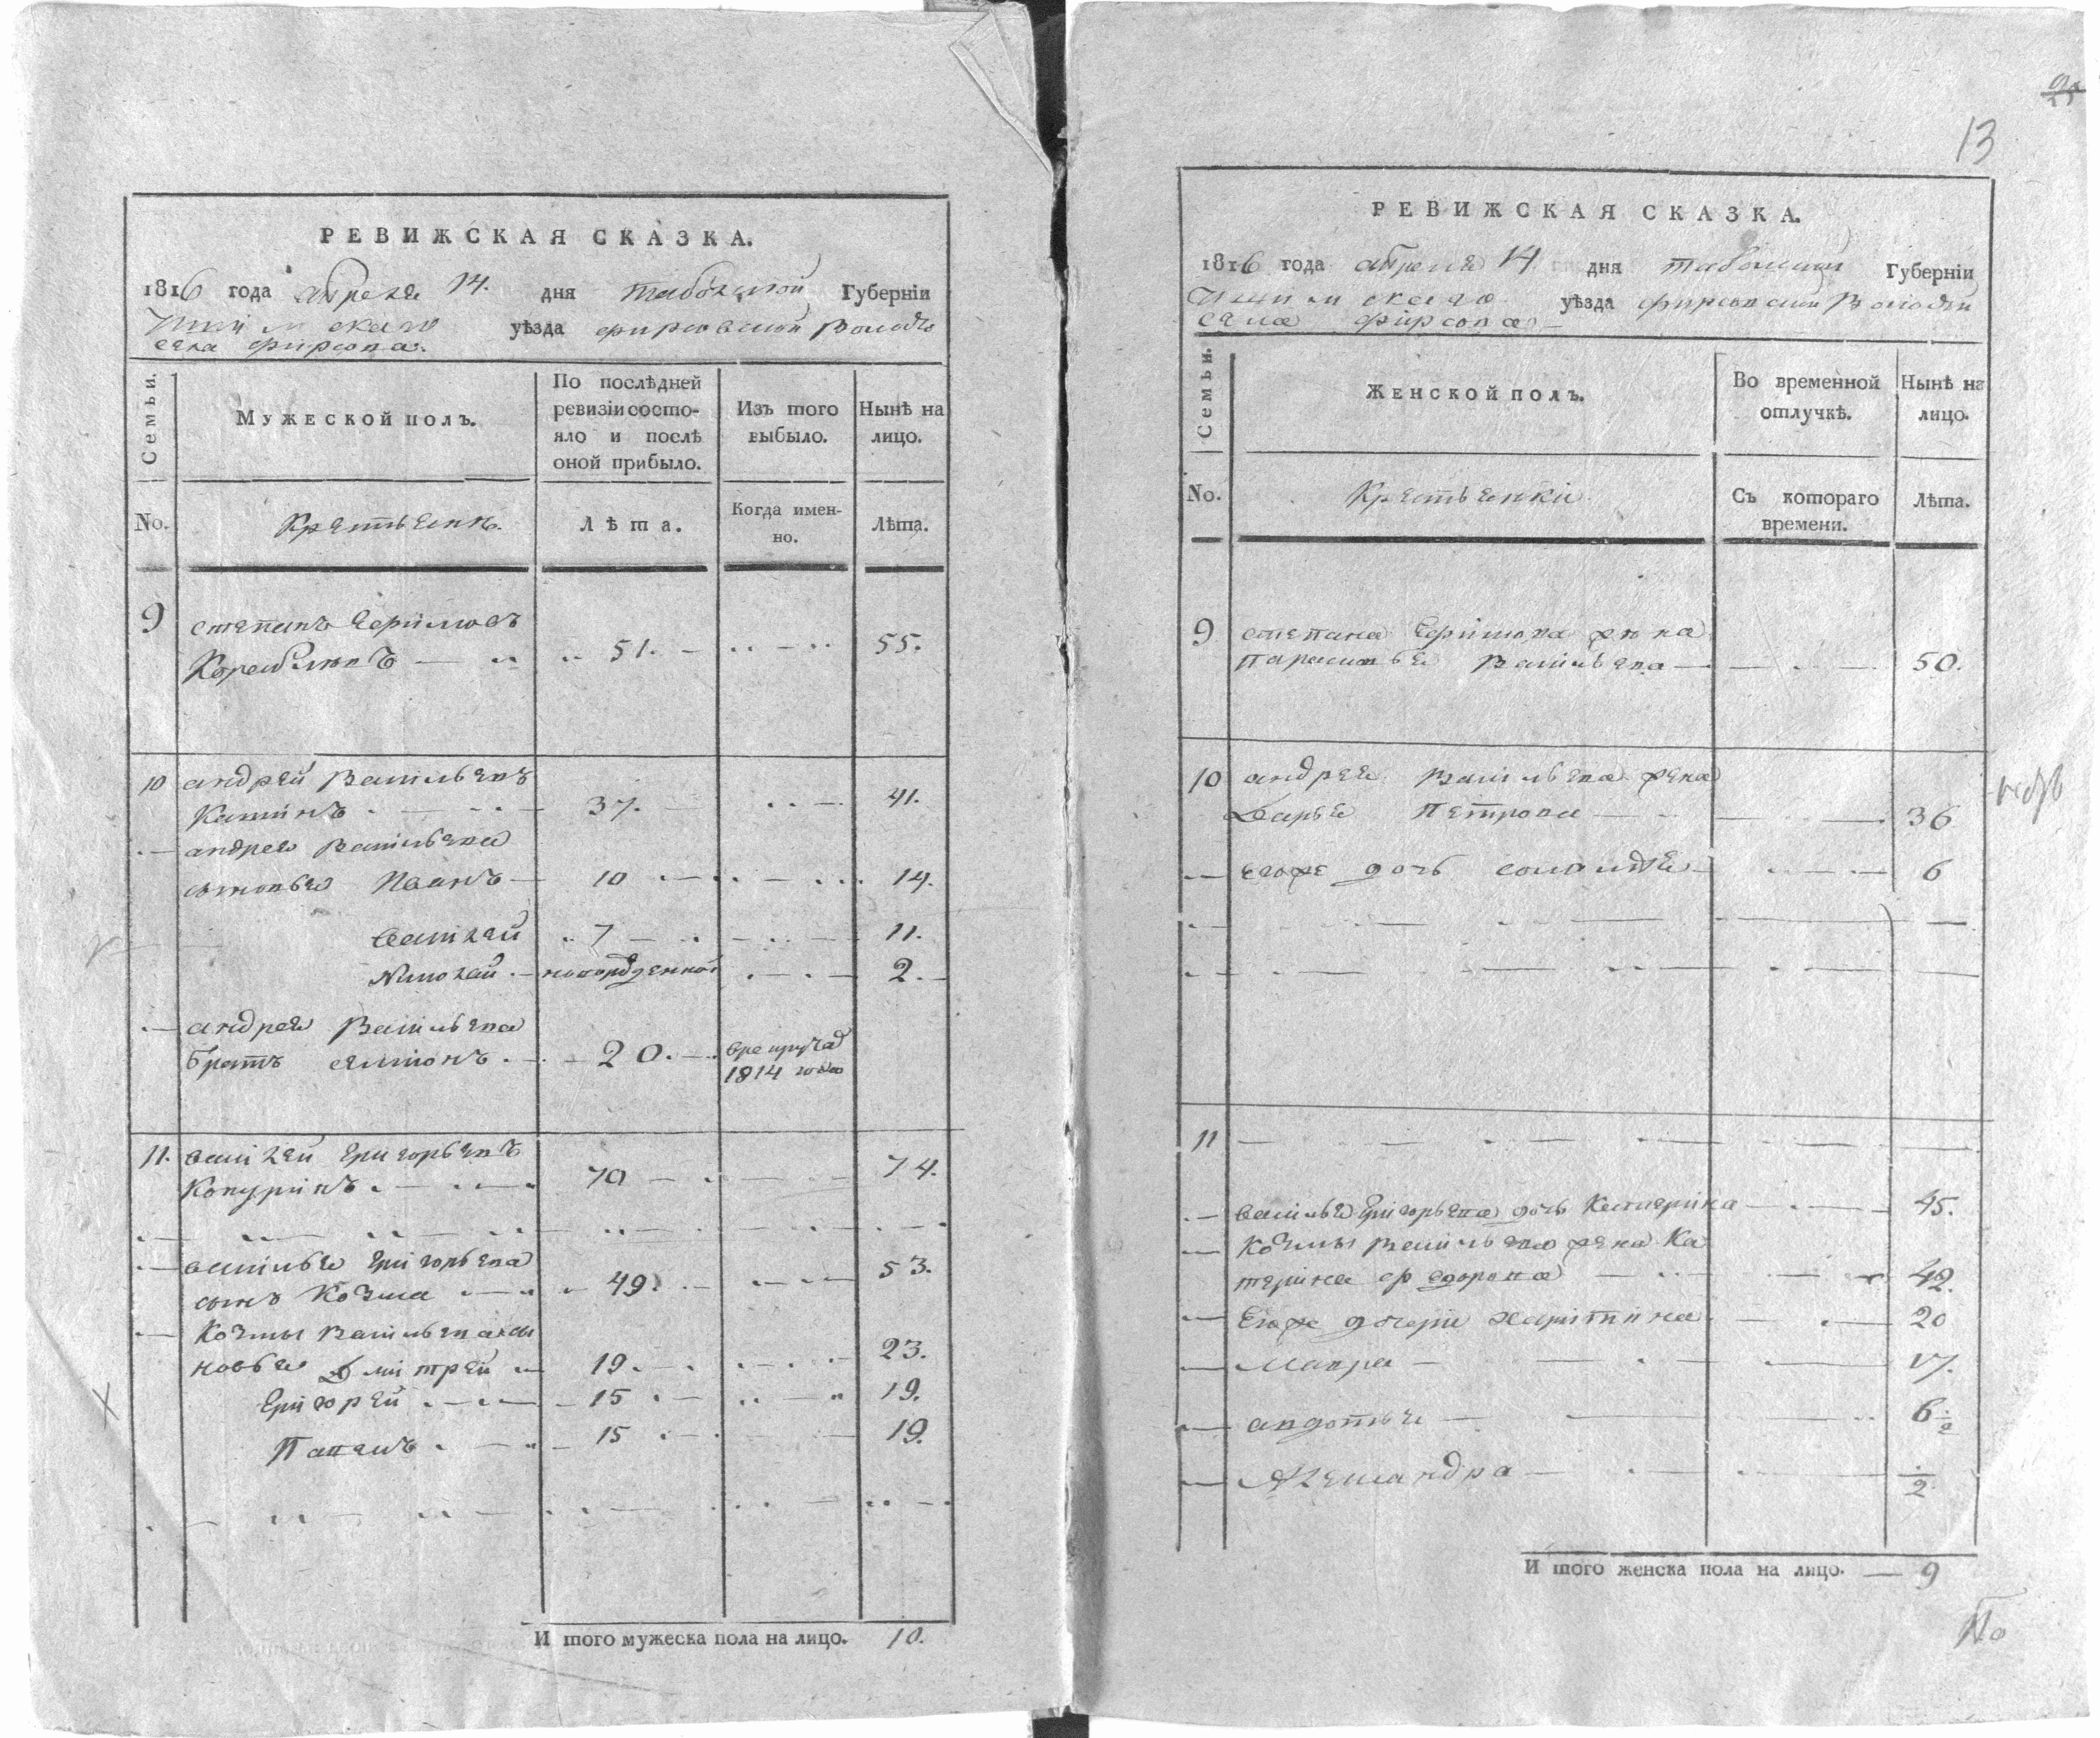 РЕВИЖСКАЯ СКАЗКА.
1816 года апреля 14. дня тобольской Губерніи
Ишимскаго уѣзда фирсовской волости
села фирсова.
Семьи.
Мужеской полъ.
По послѣдней ревизіи состояло и послѣ оной прибыло.
Изъ того выбыло.
Нынѣ на лицо.
No.
Крестьянъ.
Лѣта.
Когда именно.
Лѣта.
9 степанъ Ефимовъ
51. 55.
10 андрей Васильевъ
37. 41.
андрея Васильева
сыновья Иванъ 10 14.
василей 7 11.
николай новорожденной 2.
андрея Васильева
братъ семионъ 20. врекруты
1814 года
11. василей григорьевъ
70 74.
василья григорьева
сынъ Козма 49. 53.
Козмы Васильева сы
новья Дмитрей 19. 23.
григорей 15 19.
Павелъ 15 19.
И того мужеска пола на лицо. 10.
13
РЕВИЖСКАЯ СКАЗКА.
1816 года апреля 14 дня тобольской Губерніи
Ишимскаго уѣзда фирсовской Волости
села фирсова
Семьи.
Женской полъ.
Во временной отлучкѣ.
Нынѣ на лицо.
No.
Крестьянки
Съ котораго времени.
Лѣта.
9 степана Ефимова жена
парасковья Васильева 50.
10 андрея Васильева жена
Дарья Петрова 36
егоже дочь соломея 6
11
василья григорьева дочь Катерина 45.
Козмы Васильева жена Ка
терина федорова 42.
Егоже дочери харитина 20
Мавра 17.
авдотья 6 ½
Александра ½
И того женска пола на лицо. 9
По